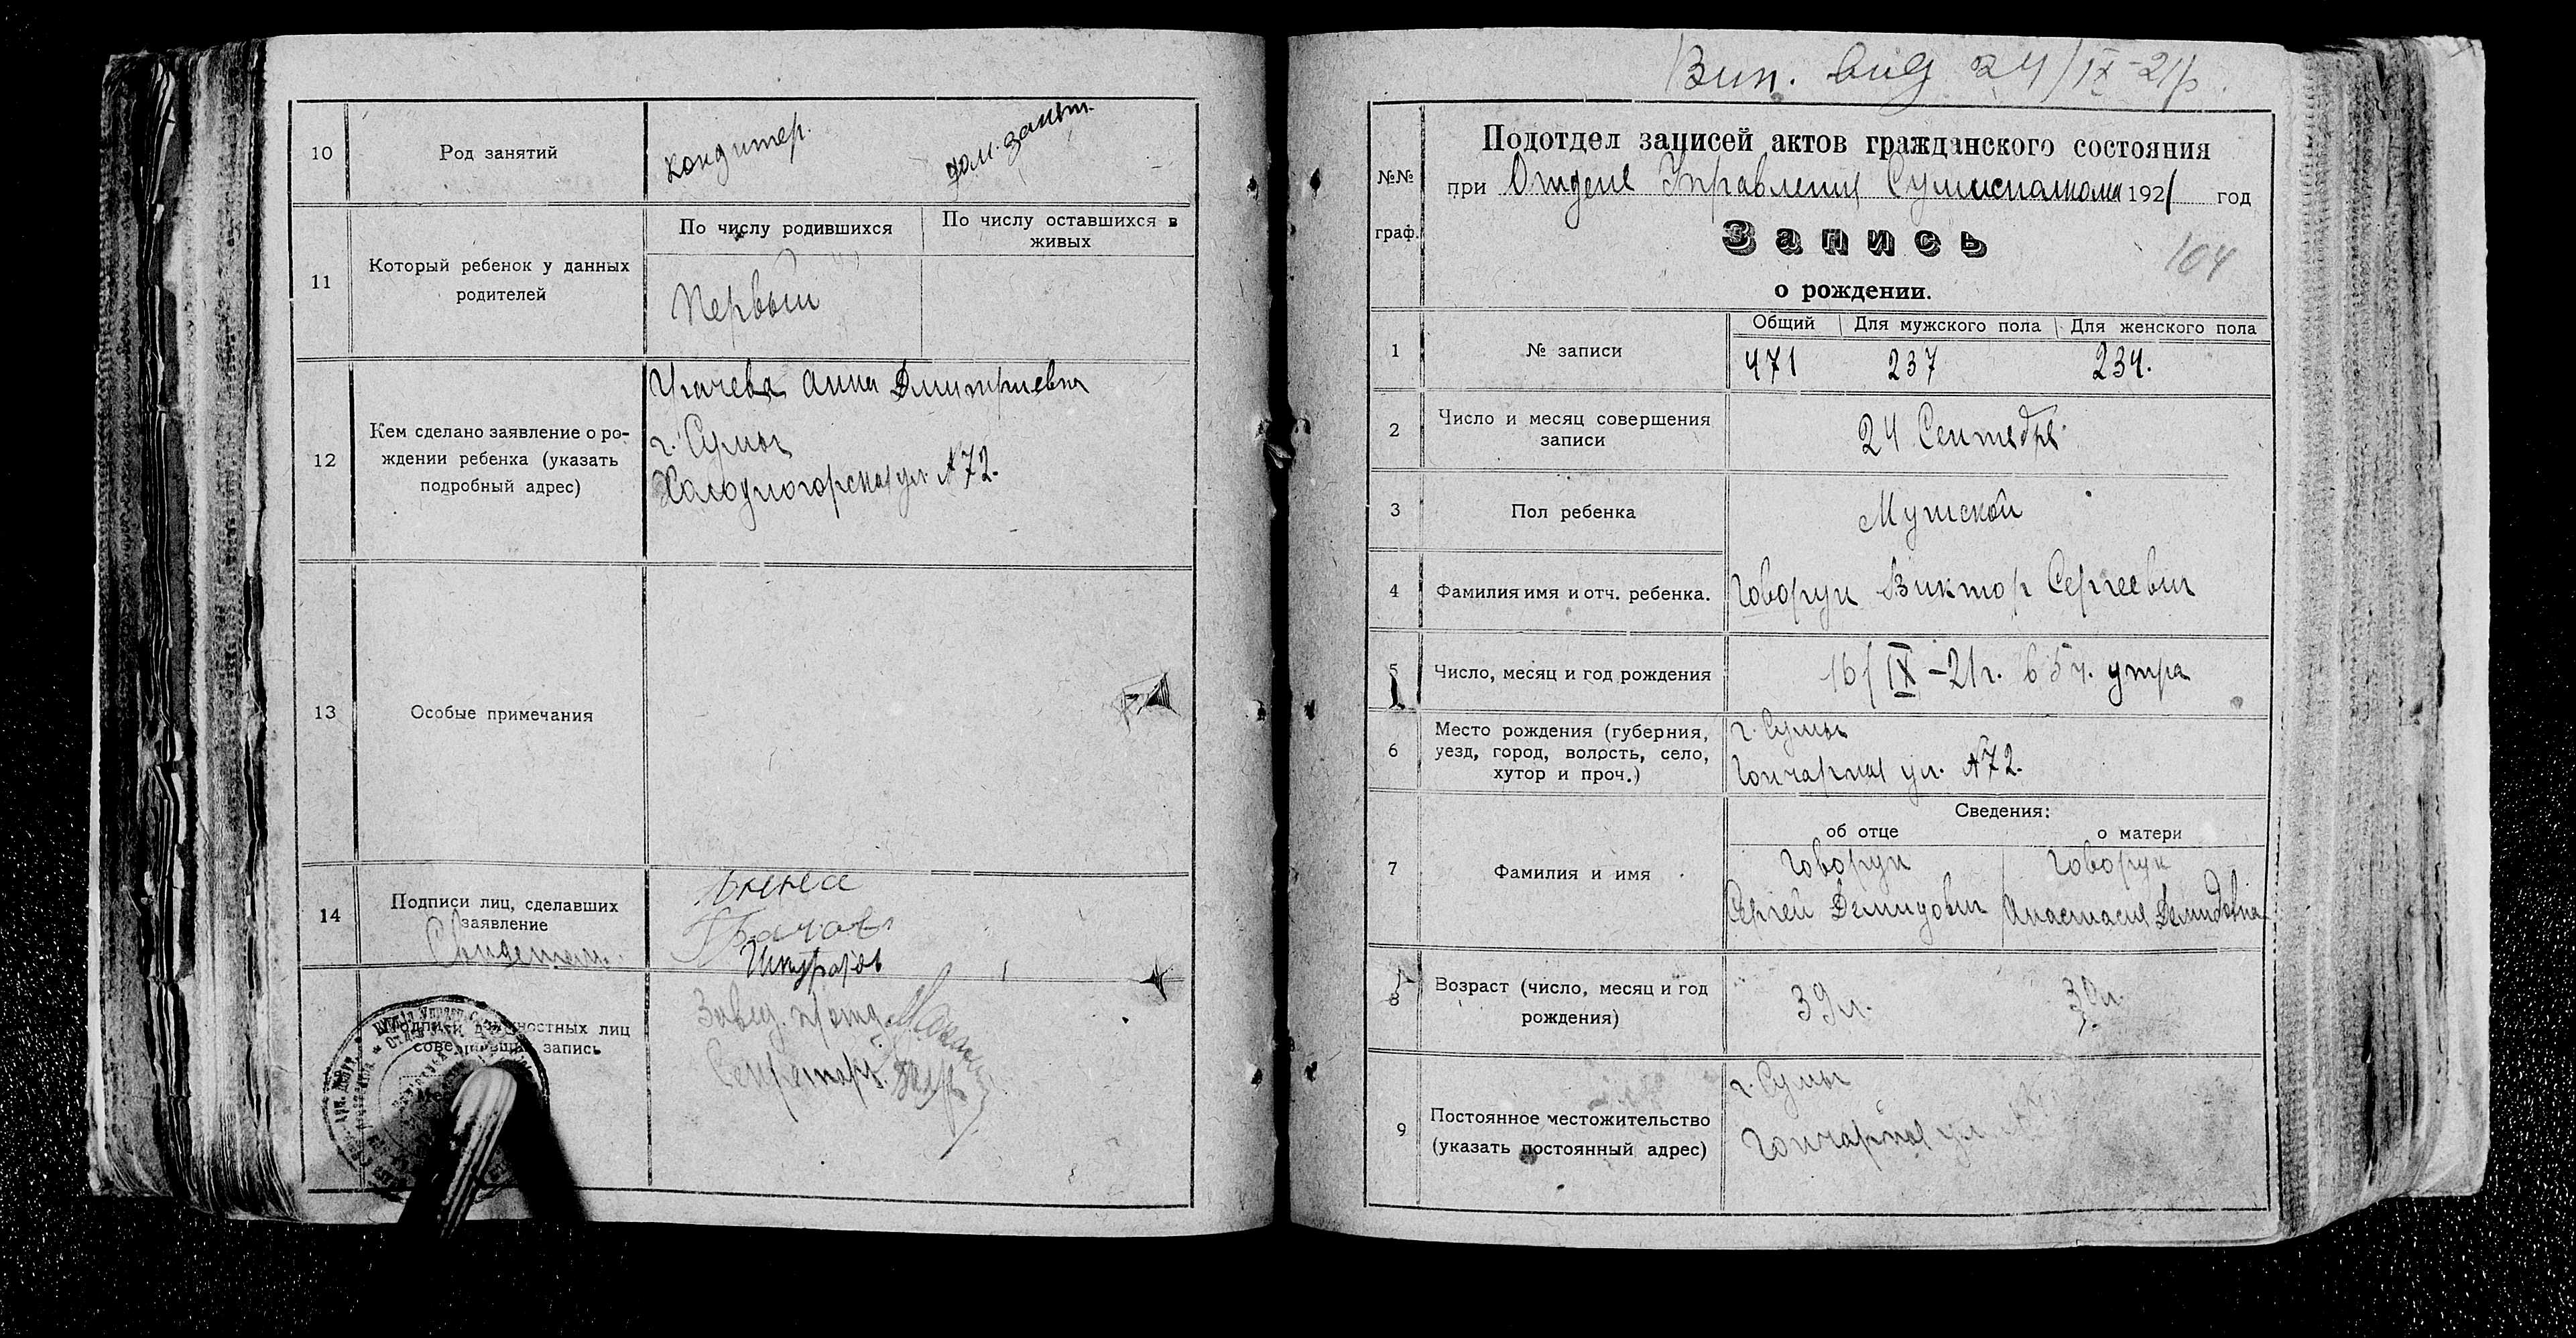 10
Род занятий
кондитер.
дом. занят.
11
Который ребенок у данных
родителей
По числу родившихся
По числу оставшихся в
живых
Первый
12
Кем сделано заявление о ро-
ждении ребенка (указать
подробный адрес)
Анна Дмитриевна
г. Сумы
Холодногорская ул. №72.
13
Особые примечания
14
Подписи лиц, сделавших
заявление
Подписи должностных лиц
совершивших запись
Завед.
Секретарь.
Вип. від 24/IX-21р.
№№
граф.
Подотдел записей актов гражданского состояния
при Отделе Управления Сумисполкома 1921 год
Запись
о рождении.
104
1
№ записи
Общий
Для мужского пола
Для женского пола
471
237
234.
2
Число и месяц совершения
записи
24 Сентября
3
Пол ребенка
Мужской
4
Фамилия имя и отч. ребенка.
Говорун Виктор Сергеевич
5
Число, месяц и год рождения
16/IX-21г. в 5 ч. утра
6
Место рождения (губерния,
уезд, город, волость, село,
хутор и проч.)
г. Сумы
Гончарная ул. №72.
Сведения:
об отце
о матери
7
Фамилия и имя
Говорун
Сергей Демидович
Говорун
Анастасия Демидовна
8
Возраст (число, месяц и год
рождения)
39 л.
30 л.
9
Постоянное местожительство
(указать постоянный адрес)
г. Сумы
Гончарная ул